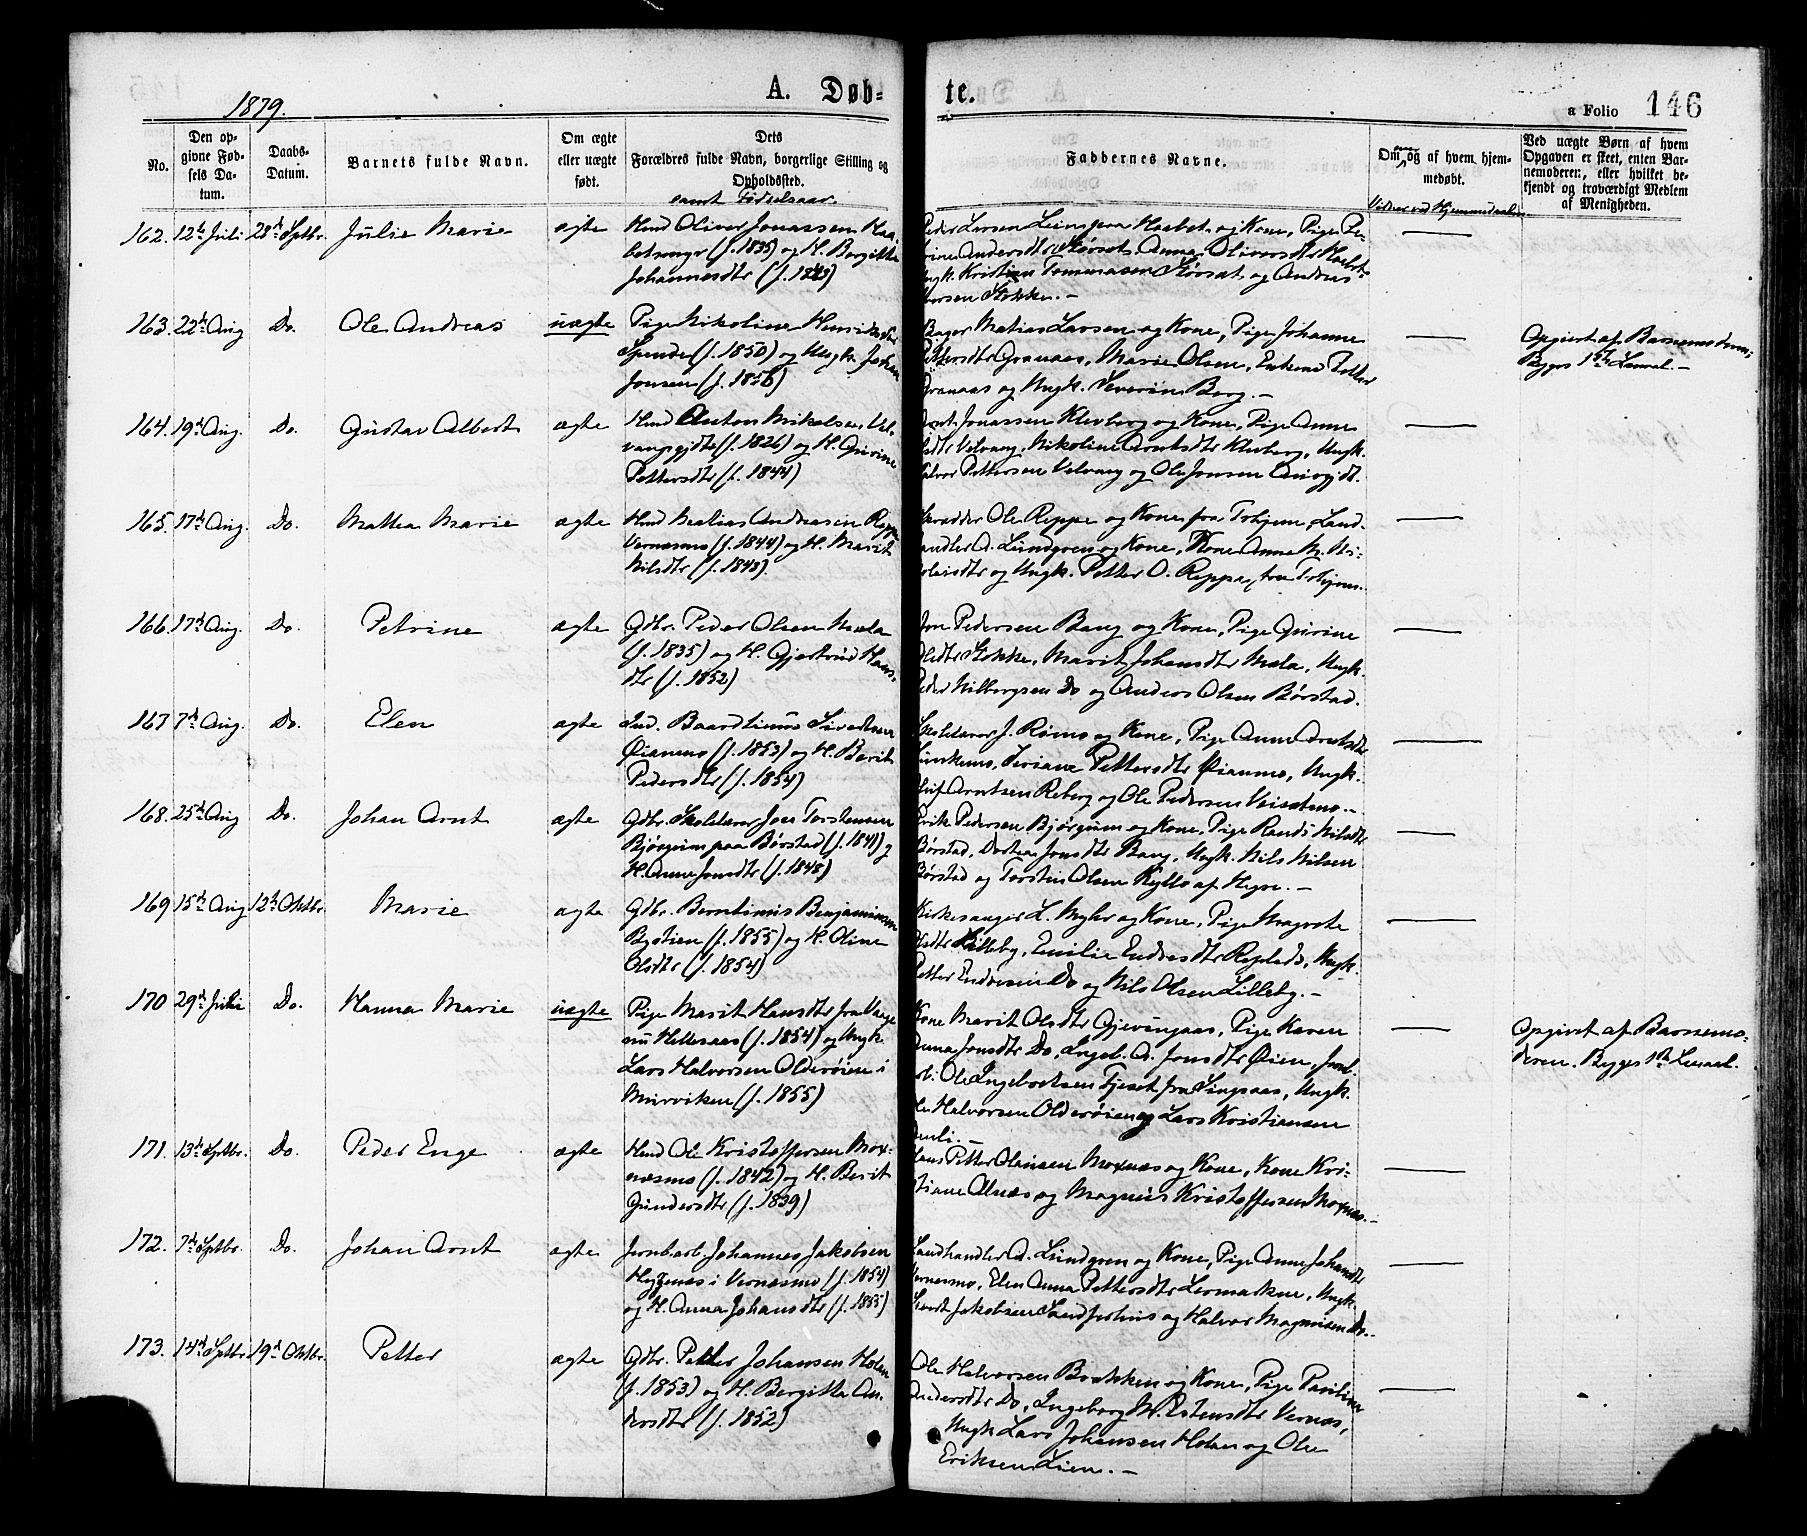 1879.
A. Døb-
te.
a Folio 146
No.
Den op-
givne Fød-
sels Da-
tum.
Daabs-
Datum.
Barnets fulde Navn.
Om ægte
eller uægte
født.
Dets
Forældres fulde Navn, borgerlige Stilling og
Opholdssted.
samt Fødselsaar.
Faddernes Navne.
Om og af hvem hjem-
medøbt.
Vidner ved Hjemmedaaben
Ved uægte Børn af hvem
Opgaven er skeet, enten Bar-
nemoderen, eller hvilket be-
kjendt og troværdigt Medlem
af Menigheden.
162. 12te Juli 28de Sptbr. Julie Marie ægte Hmd Oliver Jonassen Haa-
betsmyr (f. 1835) og H. Bergitte
Johannesdtr (f. 1843)
Peder Larsen fra Haabet og Kone, Pige Pe-
rine Andersdtr Størset, Anna Oliversdtr Haabet,
Ungk. Kristian Tommasen Størset og Andreas
Stokke. —
163. 22de Aug Do. Ole Andreas uægte Pige Nikoline Henriksdtr
(f. 1850) og Ungk. Johan
Jonsen (f. 1856)
Bager Matias Larsen og Kone, Pige Johanne
Pettersdtr Granaas, Marie Olsen, Petter
Granaas og Ungk. Severin Berg. —
Opgivet af Barnemoderen;
Bygges 1ste Leieral. —
164. 19de Aug. Do. Gustav Albert ægte Hmd Anton Mikelsen Vel-
vangsgjdt (f. 1826) og H. Gurine
Pettersdtr (f. 1844)
Arnt Jonassen Klevberg og Kone, Pige Anne
Velvang, Nikoline Arntsdtr Klevberg, Ungk.
Halvor Pettersen Velvang og Ole Jonsen
165. 17de Aug. Do. Mattea Marie ægte Hmd Matias Andreasen Reppe
Vernæsmo (f. 1844) og H. Marit
Nilsdtr (f. 1848).
Skrædder Ole Reppe og Kone fra Trhjem, Land-
handler A. Lundgren og Kone, Kone Anne M. Ni-
kolaisdtr og Ungk. Petter O. Reppe, fra Trhjem.
166. 17de Aug. Do. Petrine ægte Gdbr. Peder Olsen Mæla
(f. 1835) og H. Gjertrud Hans-
dtr (f. 1852)
Jon Pedersen Bang og Kone, Pige Gurine
Olsdtr Stokke, Marit Johansdtr Mæla, Ungk.
Peder Do og Anders Olsen Børstad.
167 7de Aug. Do. Elen ægte Ind. Baard Sivertsen
Øianmo (f. 1853) og H. Berit
Pedersdtr (f. 1854)
Skolelærer J. Rømo og Kone, Pige Anne Arntsdtr
Pettersdtr Øianmo, Ungk.
Arntsen Reberg og Ole Pedersen —
168. 25de Aug Do. Johan Arnt ægte Gdbr. Skolelærer Joen Torstensen
Bjørgum paa Børstad (f. 1841) og
H. Anne Jonsdtr (f. 1848)
Erik Pedersen Bjørgum og Kone, Pige Randi Nilsdtr
Børstad, Dortea Jonsdtr Bang, Ungk. Nils Nilsen
Børstad og Torstin Olsen Kyllo af Hegre. —
169 15de Aug 12te Oktbr. Marie ægte Gdbr. Berntinus Benjaminsen
(f. 1855) og H. Oline
Olsdtr (f. 1854)
Kirkesanger L. Myhr og Kone, Pige Magrete
Olsdtr Lilleby, Emilie Endresdtr Ungk.
Petter Endresen Do og Nils Olsen Lilleby. —
170 29de Juli Do. Hanna Marie uægte Pige Marit Hansdtr fra
nu Hillesaas (f. 1854) og Ungk.
Lars Halvorsen Olderøien i
Murviken (f. 1855)
Kone Marit Olsdtr Gjevingaas, Pige Karen
Anna Jonsdtr Do, Ingeb. A. Jonsdtr Øien,
Ole Ingebrektsen fra Singsaas, Ungk.
Ole Halvorsen Olderøien og Lars Kristiansen
Opgivet af Barnemo-
deren. Bygges 1ste Leieral.
171. 13de Sptbr. Do. Peder Enge ægte Hmd Ole Kristoffersen Mox-
næsmo (f. 1842) og H. Berit
Gundersdtr (f. 1839)
Hans Petter Olausen Moxnæs og Kone, Kone Kri-
stiane Alnæs og Magnus Kristoffersen Moxnæs. —
172. 7de Sptbr. Do. Johan Arnt ægte Jernb.arb. Johannes Jakobsen
i Vernæsmo (f. 1854)
og H. Anna Johansdtr (f. 1855)
Landhandler A. Lundgren og Kone, Pige Anne Johansdtr
Vernesmo, Elen Anna Pettersdtr Ungk.
Sivert Jakobsen og Halvor Magnusen Do. —
173. 14de Sptbr. 19de Oktbr. Petter ægte Gdbr. Petter Johansen Holen
(f. 1853) og H. Bergitta An-
dersdtr (f. 1852)
Ole Halvorsen Brækken og Kone, Pige Pauline
Andersdtr Do, Ingeborg M. Estensdtr Vernæs,
Ungk Lars Johansen Holen og Ole
Eriksen Lien. —